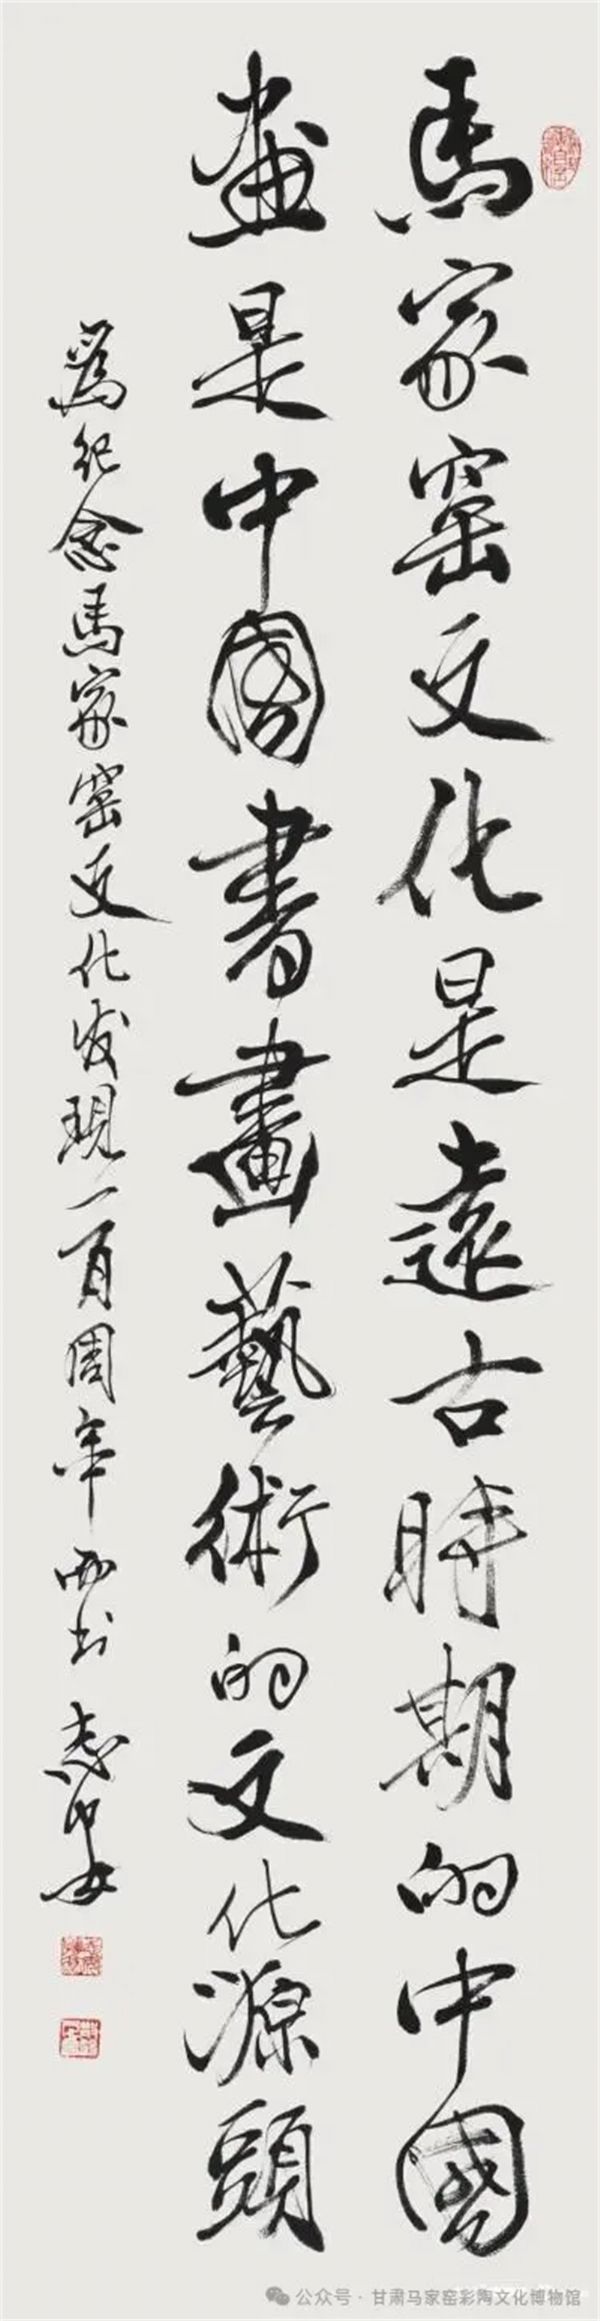 馬家窑文化是遠古時期的中國
畫是中國書畫藝術的文化源頭
為纪念馬家窑文化发現一百周年而书 志
公众号 · 甘肃马家窑彩陶文化博物馆